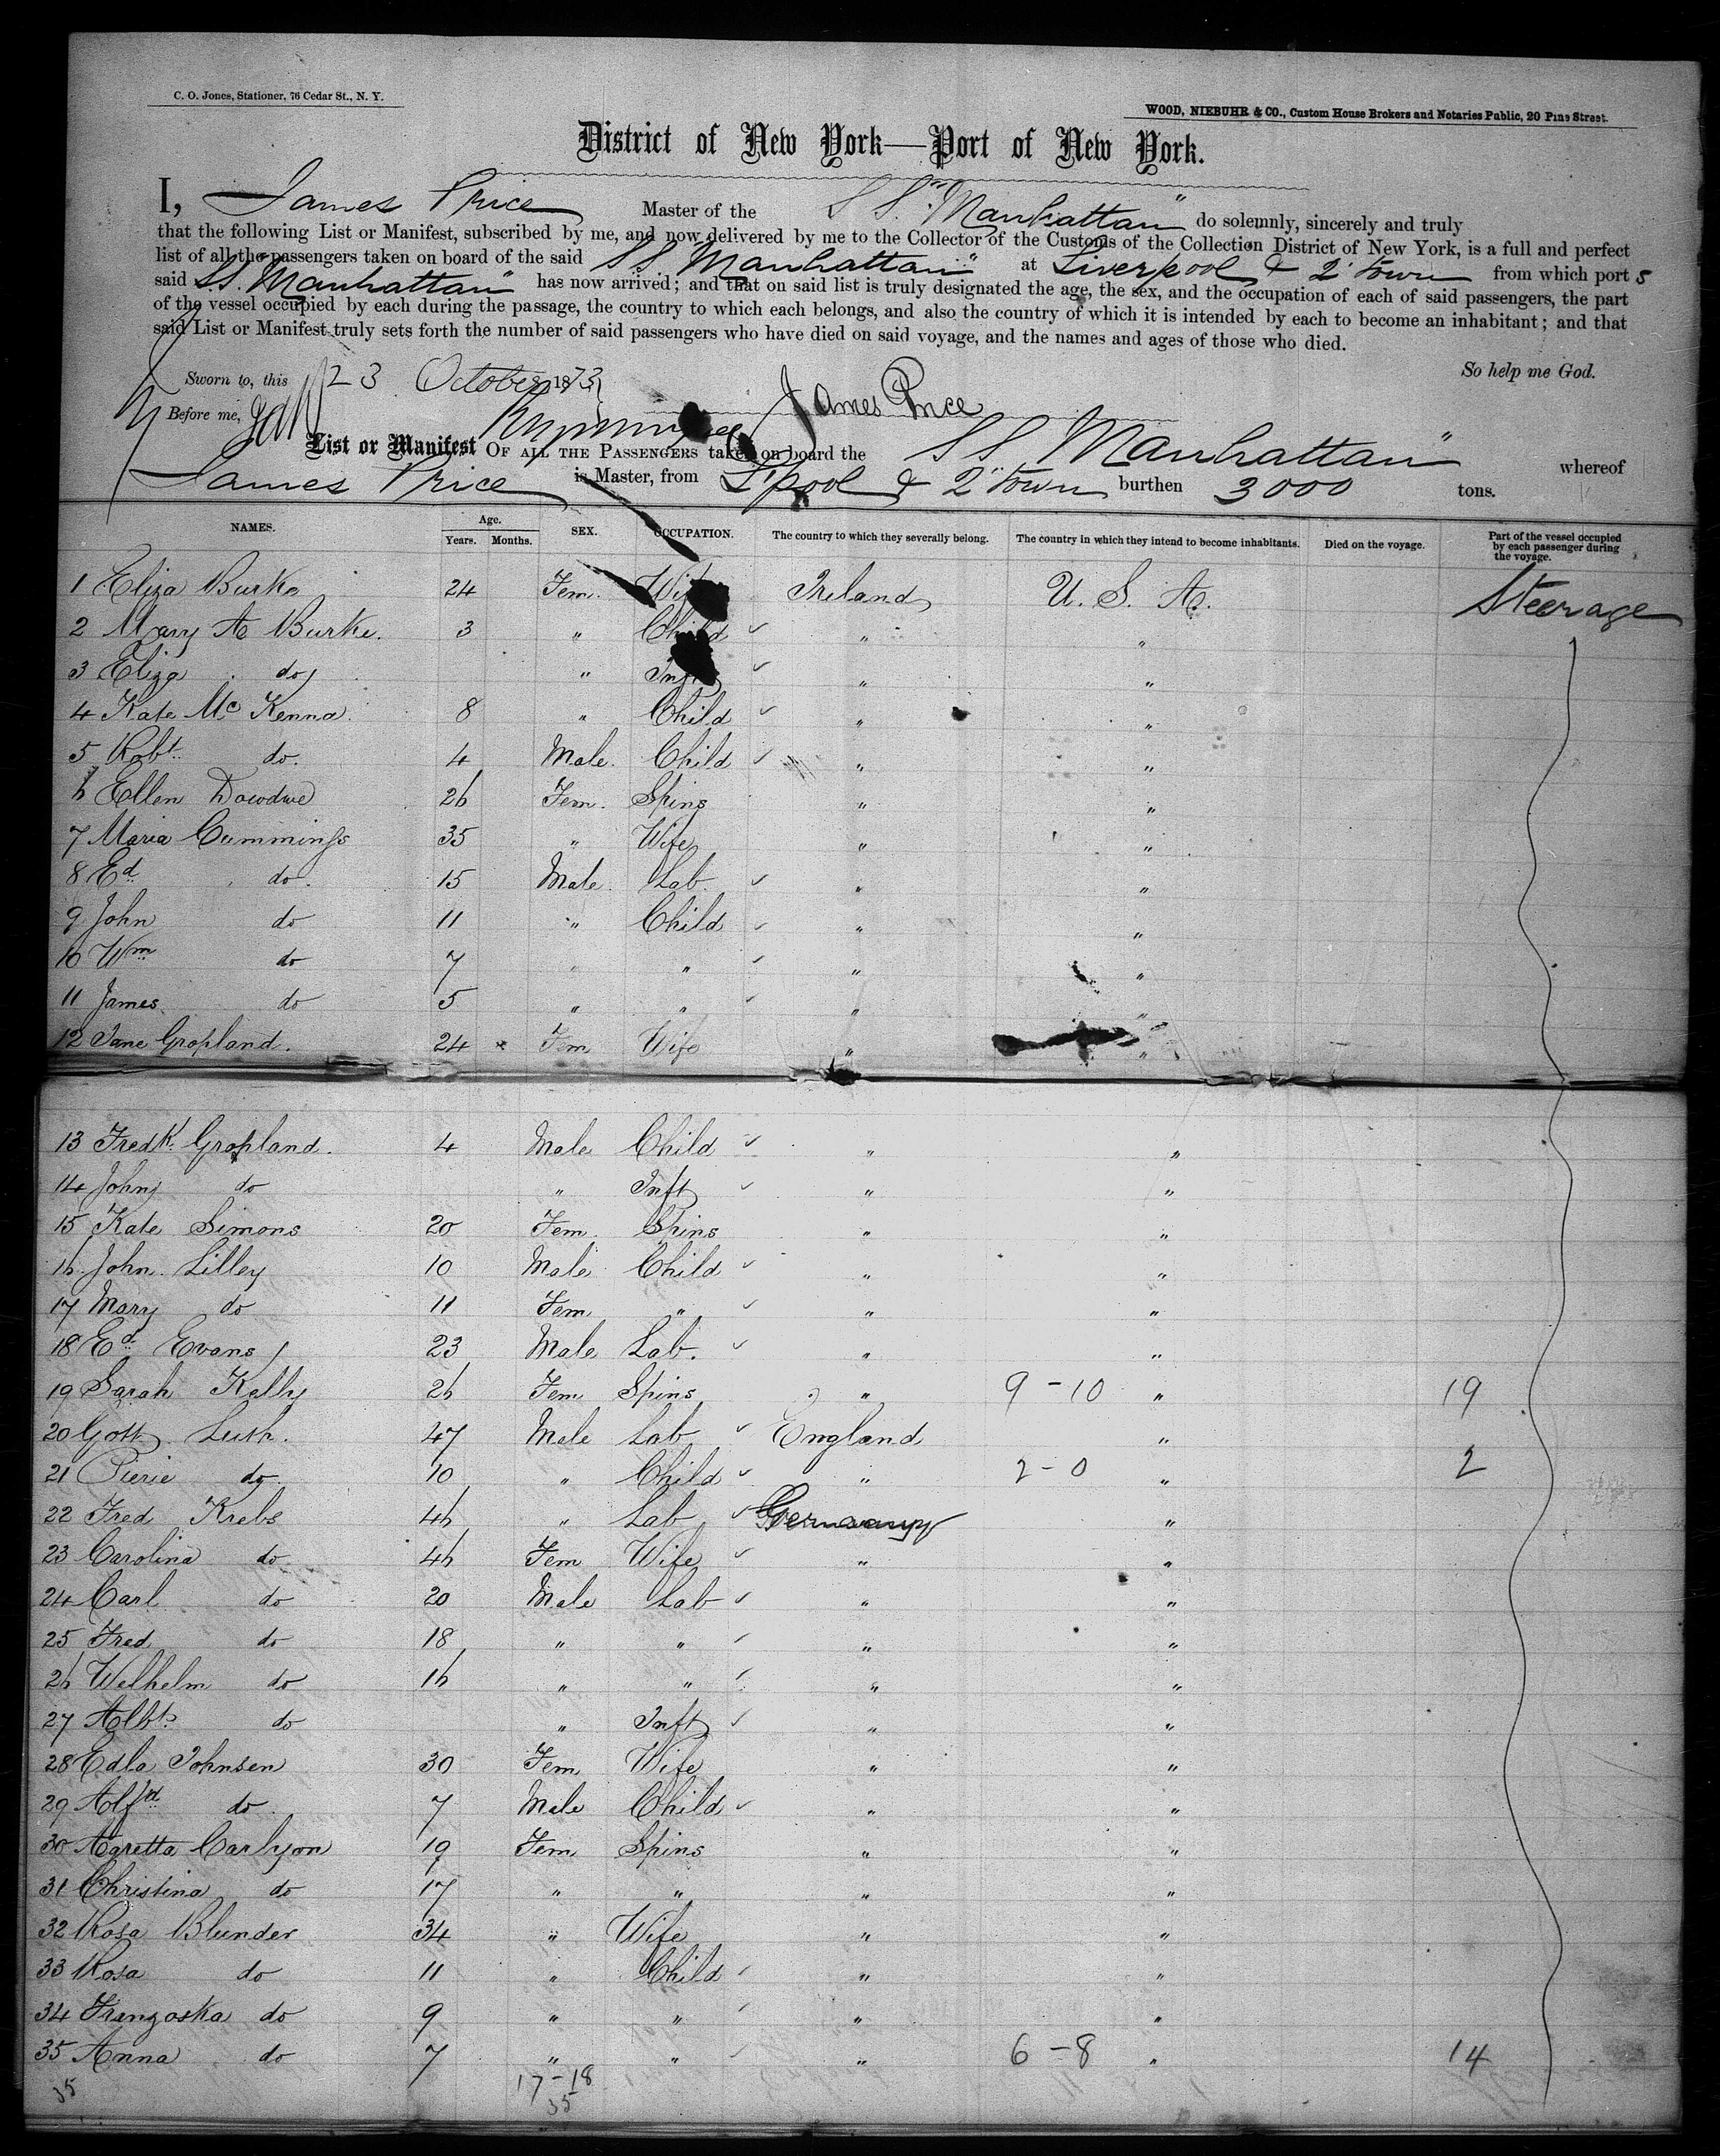 C. O. Jones, Stationer, 76 Cedar St., N. Y.
WOOD, NIEBUHR & CO., Custom House Brokers and Notaries Public, 20 Pine Street.
District of New York—Port of New York.
I, James Price Master of the S S. "Manhattan" do solemnly, sincerely and truly
that the following List or Manifest, subscribed by me, and now delivered by me to the Collector of the Customs of the Collection District of New York, is a full and perfect
list of all the passengers taken on board of the said S S "Manhattan" at Liverpool & 2" town from which port s
said S S. "Manhattan" has now arrived; and that on said list is truly designated the age, the sex, and the occupation of each of said passengers, the part
of the vessel occupied by each during the passage, the country to which each belongs, and also the country of which it is intended by each to become an inhabitant; and that
said List or Manifest truly sets forth the number of said passengers who have died on said voyage, and the names and ages of those who died.
So help me God.
Sworn to, this 23 October 1873
Before me,
James Price
List or Manifest OF ALL THE PASSENGERS taken on board the S S Manhattan" whereof
James Price is Master, from L'pool & 2" town burthen 3000 tons.
NAMES. Age. Years. Months. SEX. OCCUPATION. The country to which they severally belong. The country in which they intend to become inhabitants. Died on the voyage. Part of the vessel occupied by each passenger during the voyage.
1 Eliza Burke 24 Fem. Wife Ireland U. S. A. Steerage
2 Mary A Burke. 3 " Child " "
3 Eliza do " Inft " "
4 Kate Mc Kenna. 8 " Child " "
5 Robt do. 4 Male. Child " "
6 Ellen 26 Fem. Spins " "
7 Maria Cummings 35 " Wife " "
8 Ed do. 15 Male. Lab. " "
9 John do 11 " Child " "
10 Wm do 7 " " " "
11 James do 5 " " " "
12 Jane Gropland. 24 Fem Wife " "
13 Fredk. Gropland. 4 Male Child " "
14 John do " Inft " "
15 Kate Simons 20 Fem. Spins " "
16 John Lilley 10 Male Child " "
17 Mary do 11 Fem " " "
18 Ed Evans 23 Male Lab. " "
19 Sarah Kelly 26 Fem Spins " 9 - 10 " 19
20 Gott Lush. 47 Male Lab England "
21 Pierie do. 10 " Child " 2 - 0 " 2
22 Fred Krebs 46 " Lab Germany "
23 Carolina do 46 Fem Wife " "
24 Carl do 20 Male Lab " "
25 Fred do 18 " " " "
26 Welhelm do 16 " " " "
27 Albt. do " Inft " "
28 Edla Johnsen 30 Fem Wife " "
29 Alfd do. 7 Male Child " "
30 Agretta Carlyon 19 Fem Spins " "
31 Christina do 17 " " " "
32 Rosa Blunder 34 " Wife " "
33 Rosa do 11 " Child " "
34 Franzoska do 9 " " " "
35 Anna do 7 " " " 6 - 8 " 14
35 17 - 18
35